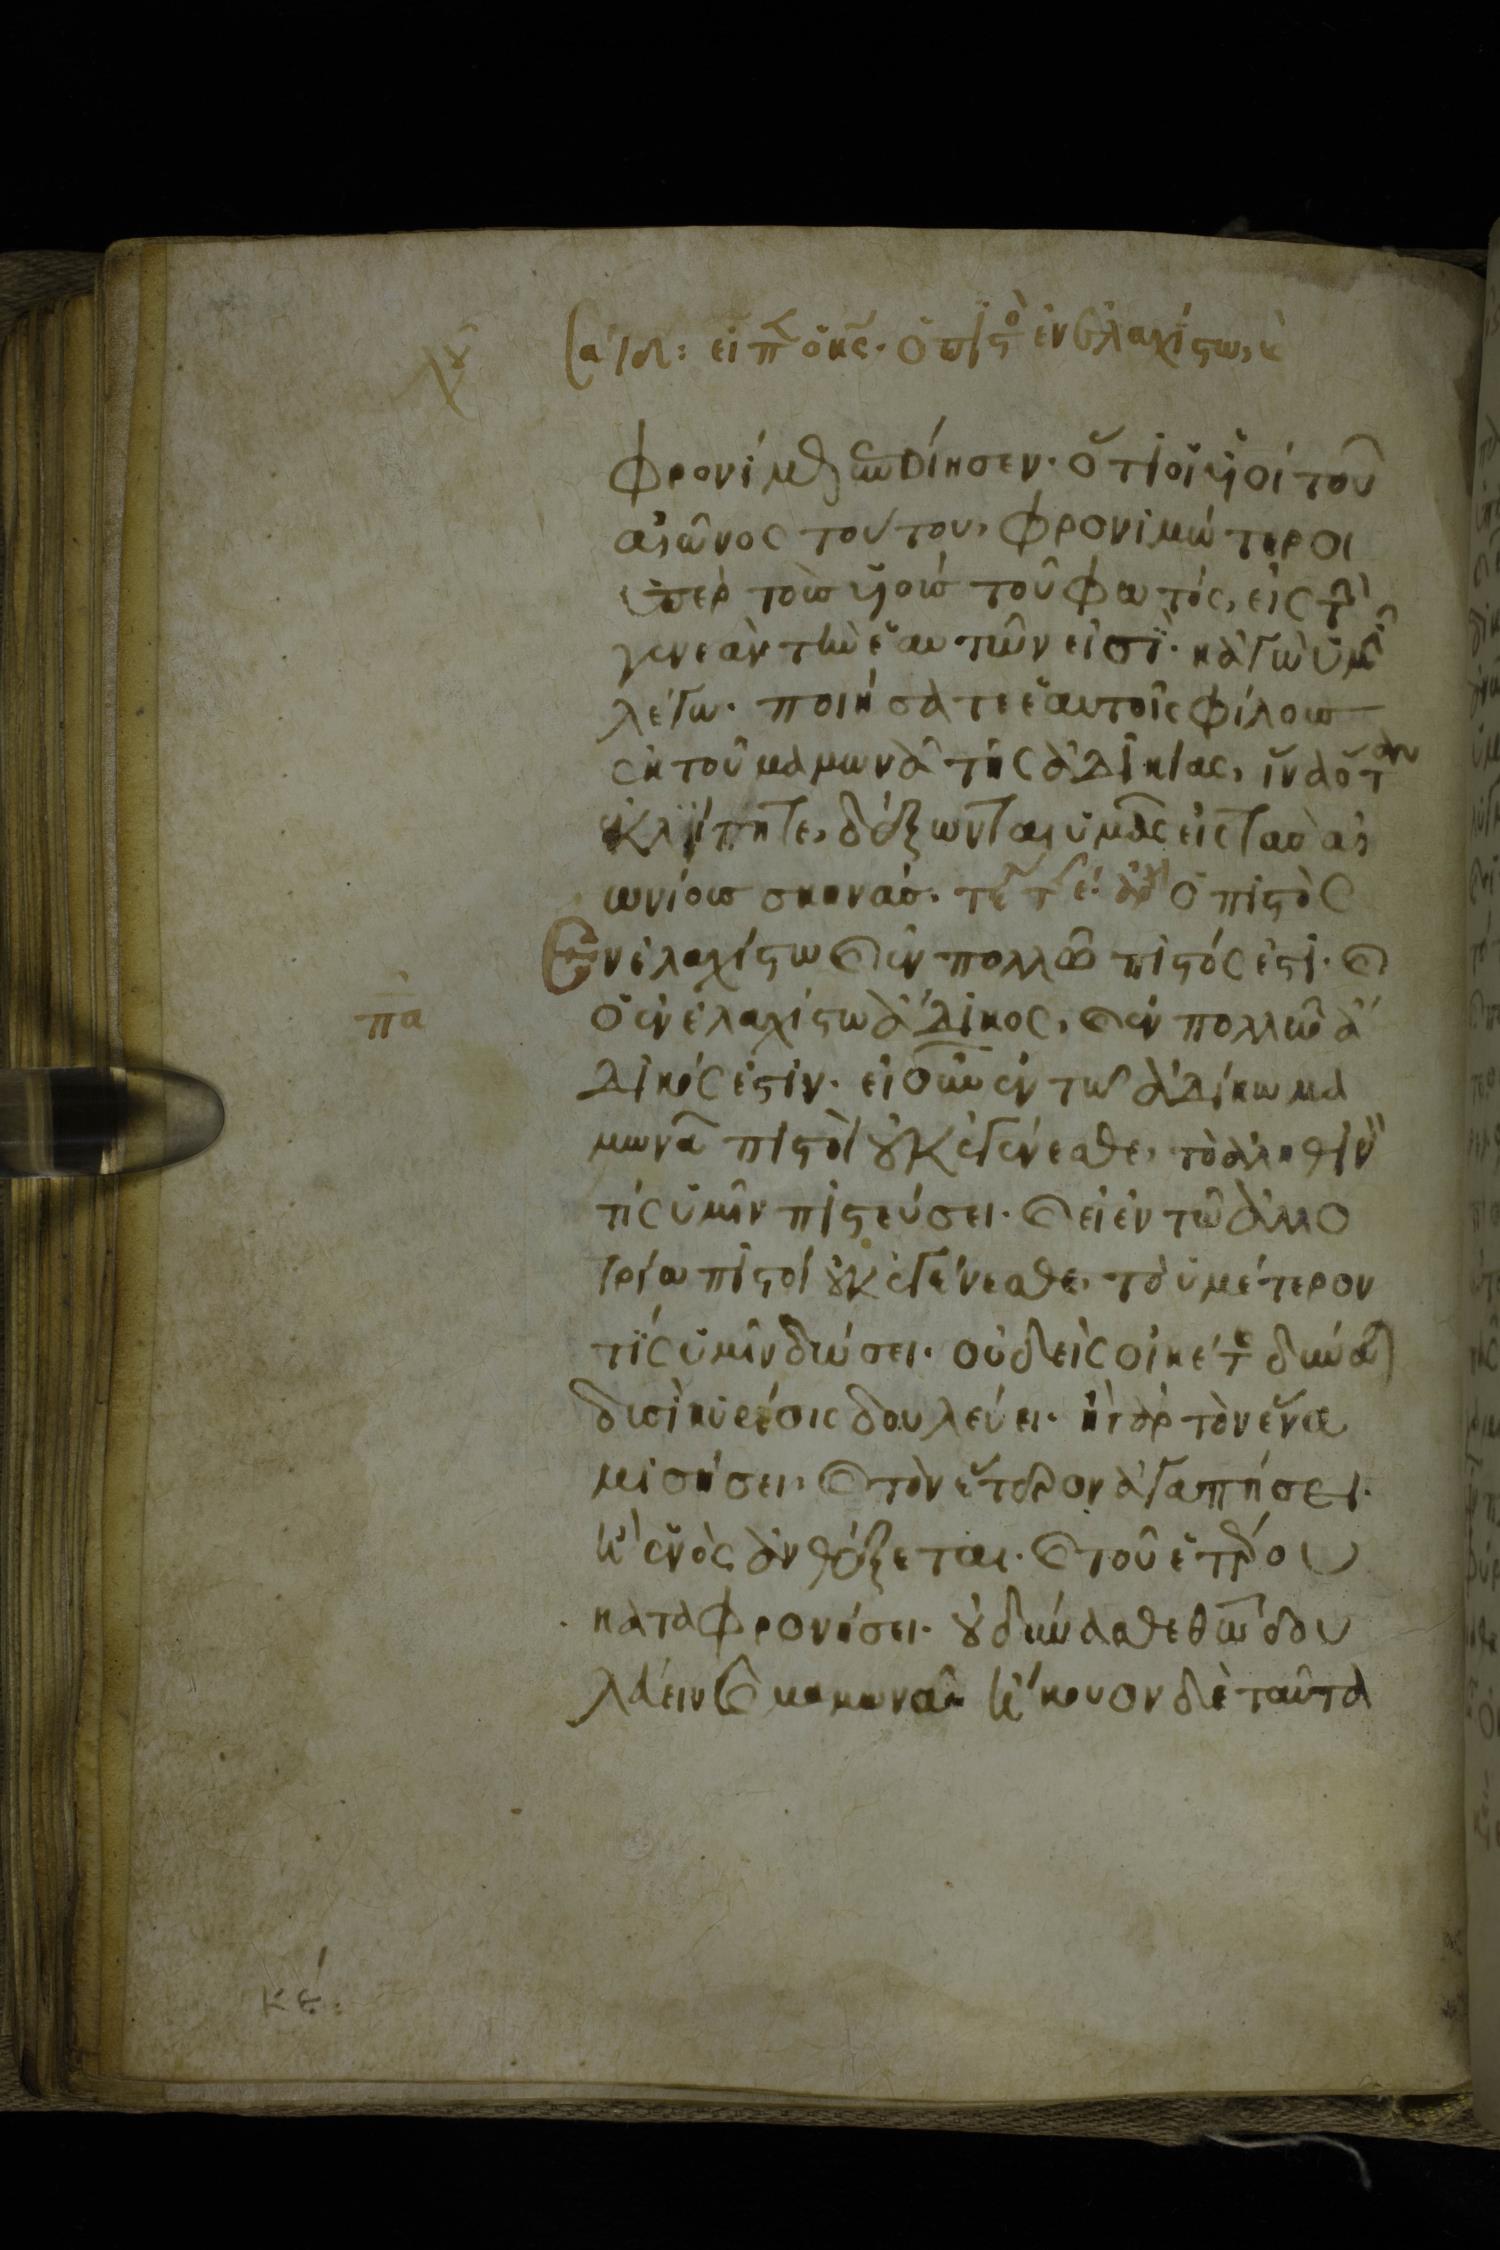 εἶπεν ὁ κς. ὁ πιστὸς ἐν ἐλαχίστω, κ
φρονίμως ἐποίησεν. ὅτι οἱ υἱοὶ τοῦ
αἰῶνος τούτου, φρονιμώτεροι
ὑπὲρ τοὺς υἱοὺς τοῦ φωτός, εἰς τὴν
γενεὰν τὴν ἑαυτῶν εἰσϊ. κἀγὼ ὑμῖν
λέγω. ποιήσατε ἑαυτοῖς φίλους
ἐκ τοῦ μαμωνᾶ τῆς ἀδικίας, ἵνα ὅταν
ἐκλείπητε, δέξωνται ὑμᾶς εἰς τὰς αἰ
ωνίους σκηνάς. ὁ πιστὸς
ἐν ἐλαχίστω καὶ ἐν πολλῶ πιστός ἐστι. καὶ
πα
ὁ ἐν ἐλαχίστω ἄδικος, καὶ ἐν πολλῶ ἄ
δικός ἐστιν. εἰ οὖν ἐν τῶ ἀδίκω μα
μωνᾶ πιστοὶ οὐκ ἐγένεσθε, τὸ ἀληθινὸν
τίς ὑμῖν πιστεύσει. καὶ εἰ ἐν τῶ ἀλλο
τρίω πιστοὶ οὐκ ἐγένεσθε, τὸ ὑμέτερον
τίς ὑμῖν δώσει. οὐδεὶς οἰκέτης δύναται
δυσὶ κυρίοις δουλεύειν. ἢ γὰρ τὸν ἕνα
μισήσει, καὶ τὸν ἕτερον ἀγαπήσει.
ἢ ἑνὸς ἀνθέξεται. καὶ τοῦ ἑτέρου
καταφρονήσει. οὐ δύνασθε θῶ δου
λεύειν καὶ μαμωνᾶ. ἤκουον δὲ ταῦτα
κε